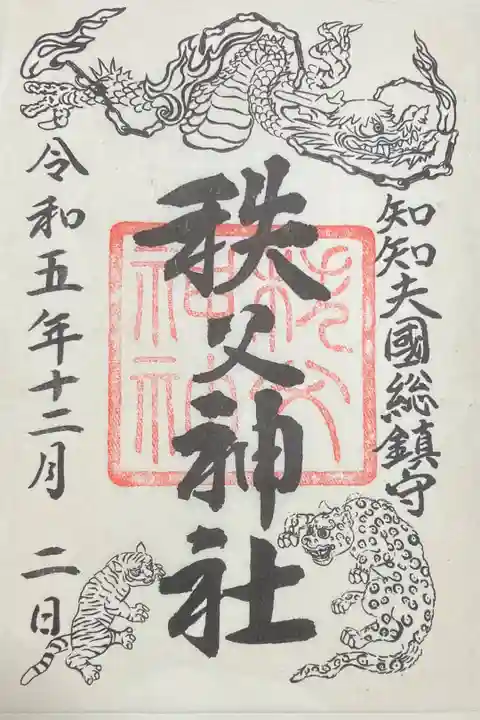 知知夫國総鎮守
秩父神社
秩父
神社
令和五年十二月 二日